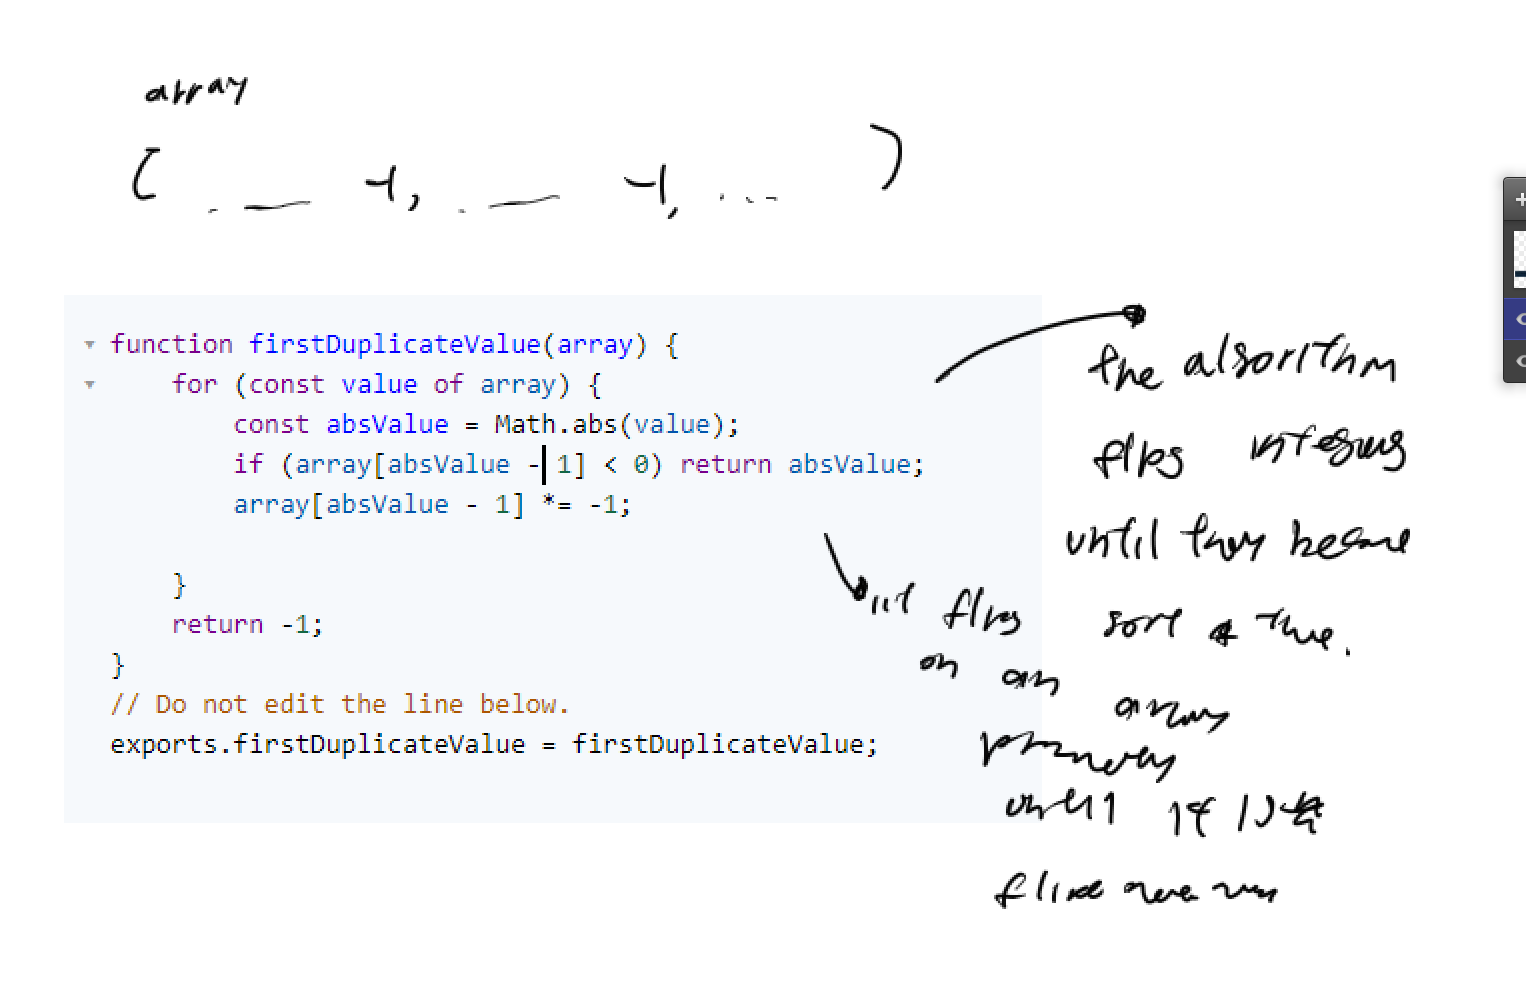 array
[ . __ -1, . __ -1, ... ]
function firstDuplicateValue(array) {
for (const value of array) {
const absValue = Math.abs(value);
if (array[absValue - 1] < 0) return absValue;
array[absValue - 1] *= -1;
}
return -1;
}
// Do not edit the line below.
exports.firstDuplicateValue = firstDuplicateValue;
the algorithm
flips integers
until they became
sort of true.
it flips
on an
array
until it is